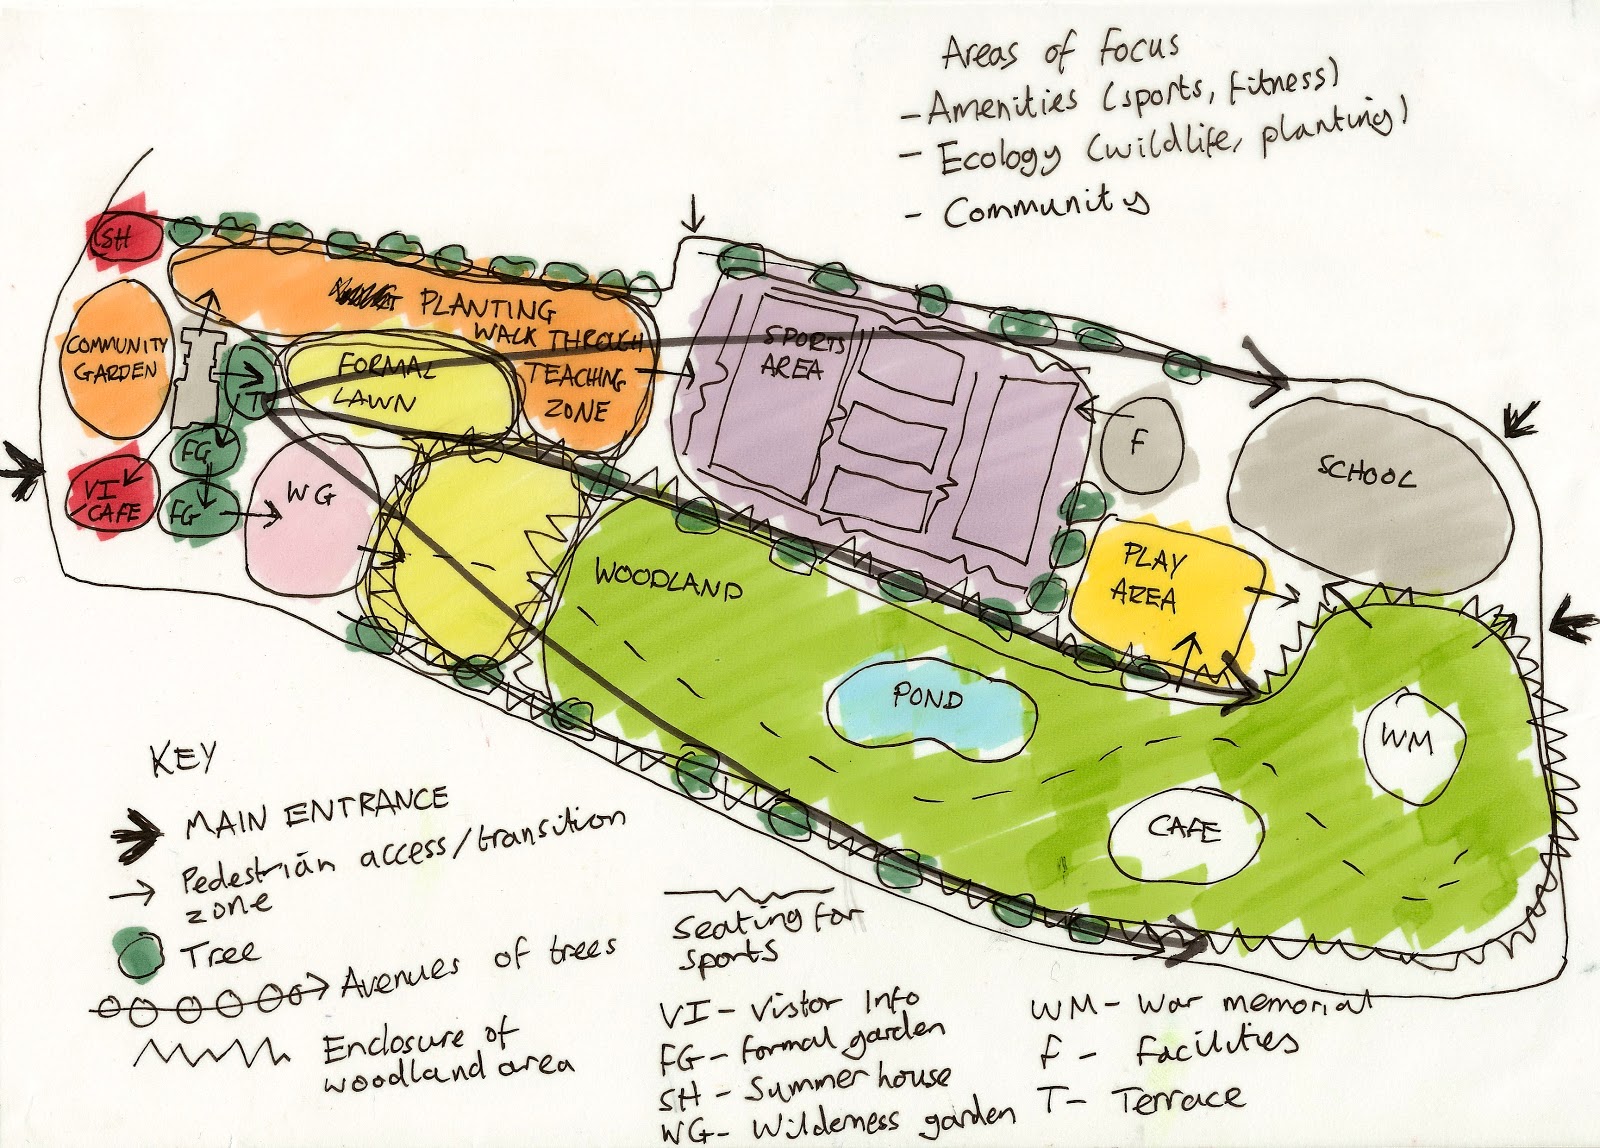 Areas of Focus
- Amenities (sports, fitness)
- Ecology (wildlife, planting)
- Community
SH
PLANTING
WALK THROUGH
TEACHING
ZONE
COMMUNITY
GARDEN
FORMAL
LAWN
T
SPORTS
AREA
F
SCHOOL
FG
VI
/CAFE
FG
WG
WOODLAND
PLAY
AREA
POND
WM
CAFE
KEY
MAIN ENTRANCE
Pedestrian access/transition
zone
Tree
Avenues of trees
Enclosure of
woodland area
Seating for
sports
VI - Vistor Info
FG - Formal garden
SH - Summer house
WG - Wilderness garden
WM - War memorial
F - Facilities
T - Terrace